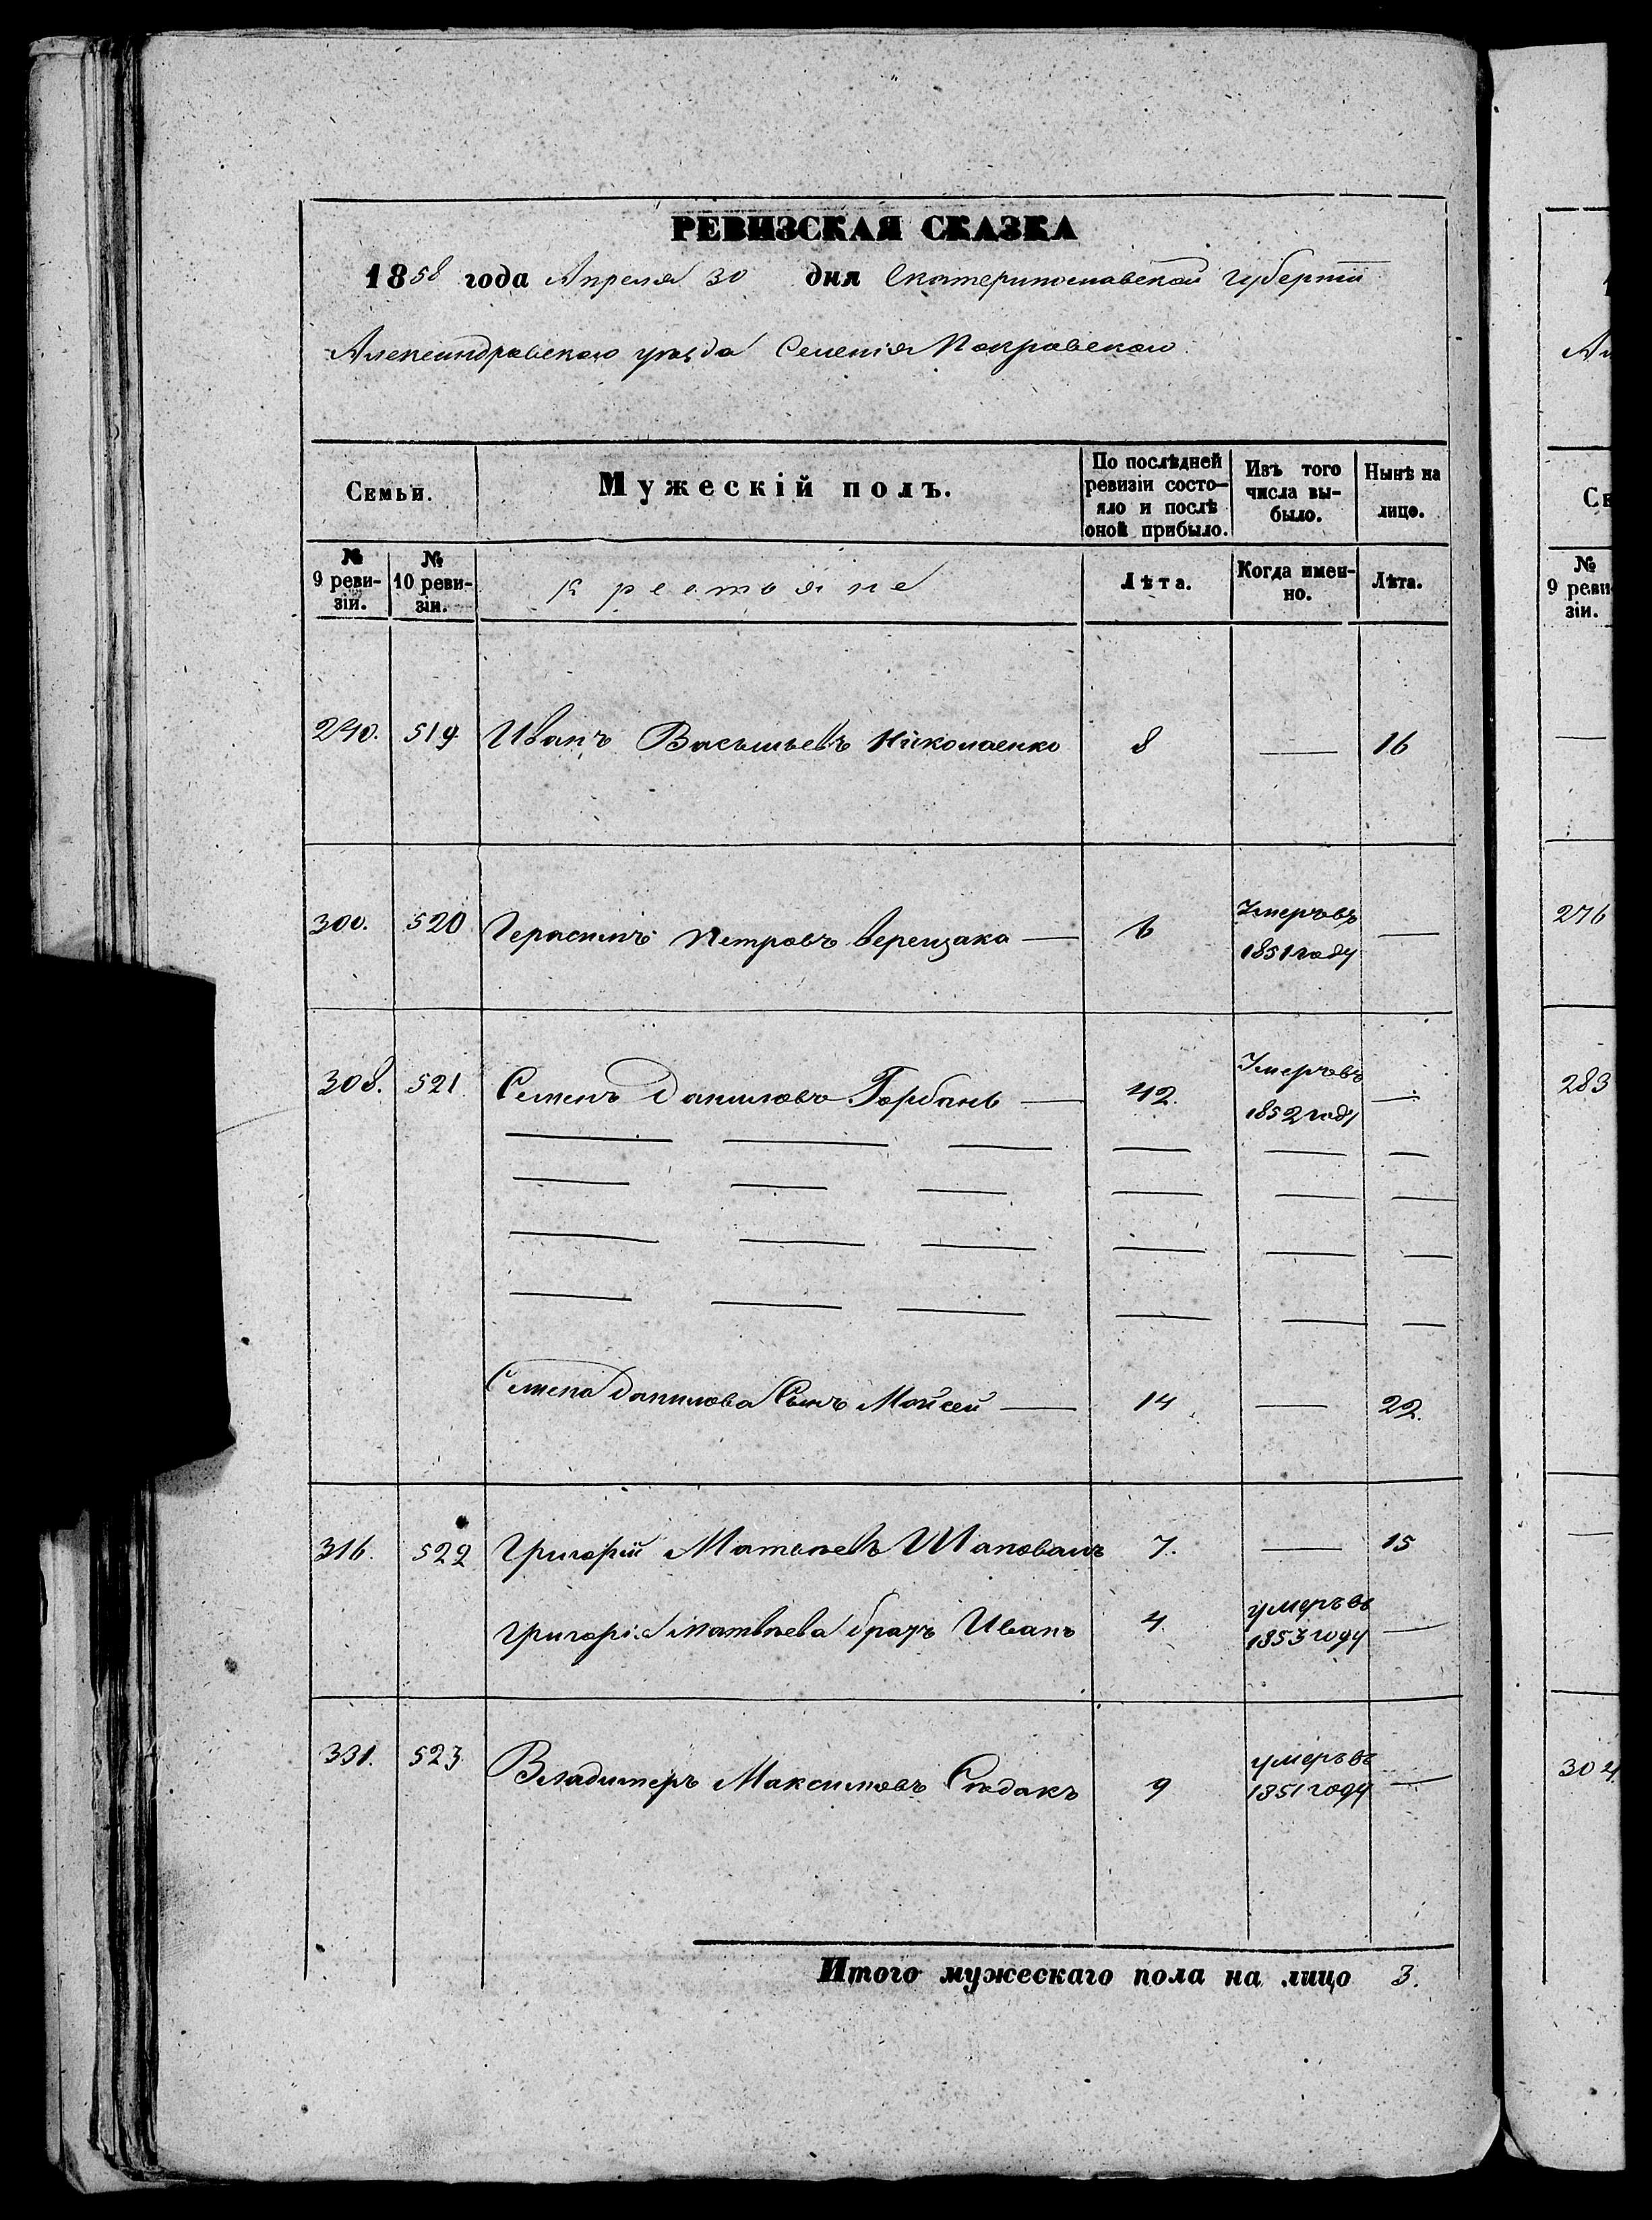 РЕВИЗСКАЯ СКАЗКА
1858 года Апреля 30 дня Екатеринославской Губернии
Александровского уезда Селения Покровского
Семьи. Мужескій полъ. По послѣдней ревизіи состояло и послѣ оной прибыло. Изъ того числа выбыло. Нынѣ на лицо.
№ 9 ревизіи. № 10 ревизіи. крестьяне Лѣта. Когда именно. Лѣта.
240. 519. Иванъ Васильевъ Николаенко 8 — 16
300. 520 Герасимъ Петровъ Верещака — 6 Умеръ въ 1851 году —
308. 521. Семенъ Даниловъ Горбань — 42. Умеръ въ 1852 году —
— — — — — —
— — — — — —
— — — — — —
— — — — — —
Семена Данилова Сынъ Мойсей — 14 — 22.
316. 522 Григорій Матвѣевъ Шаповалъ 7. — 15
Григорія Матвѣева братъ Иванъ 4. умеръ въ 1853 году —
331. 523. Владимеръ Максимовъ Сѣдакъ 9 умеръ въ 1851 году —
Итого мужескаго пола на лицо 3.
№ 9 реви зіи.
276
283
304